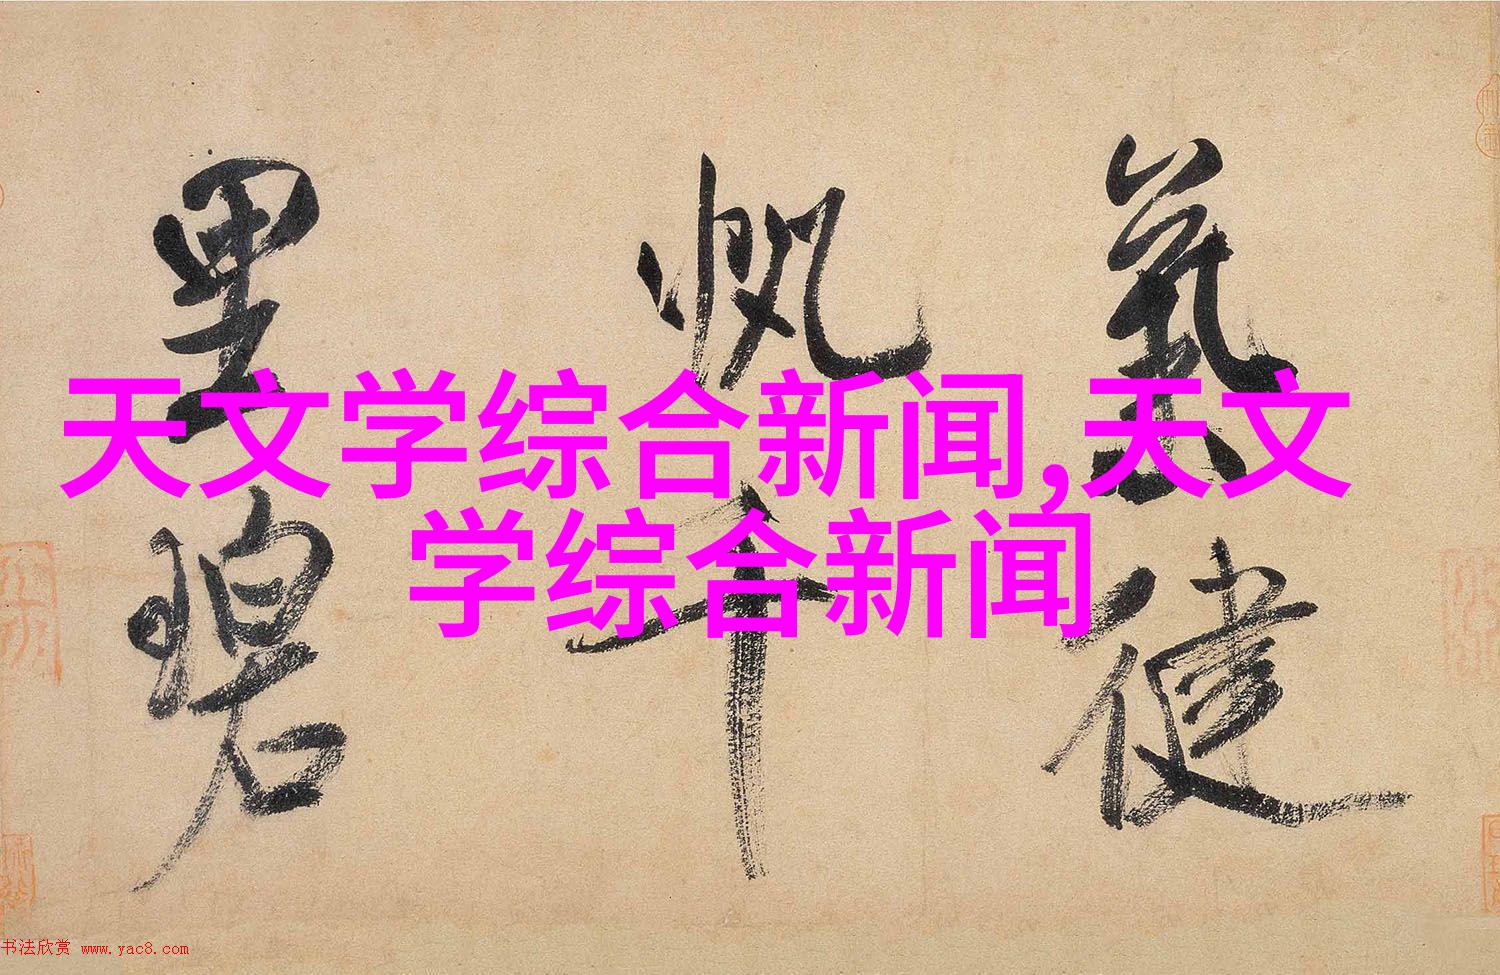 天文学综合新闻,天文
学综合新闻
健
帆千
里碧
书法欣赏 www.yac8.com